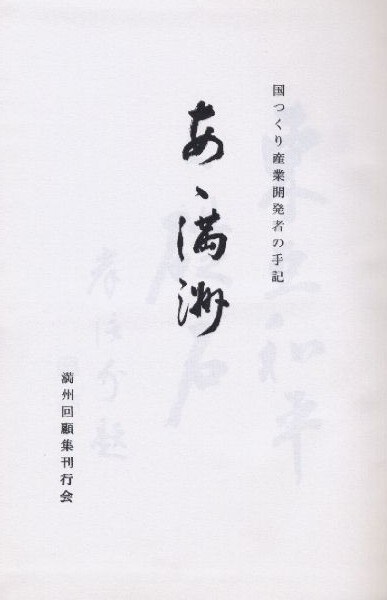 国つくり産業開発者の手記
あゝ満洲
満州回顧集刊行会